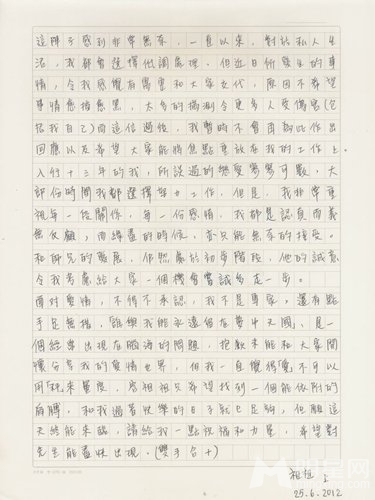 這陣子感到非常無奈，一直以來，對於私人生
活，我都會選擇低調處理。但近日所發生的事
情，令我感覺有需要和大家交代，原因不希望
事情愈描愈黑，太多的揣測令更多人受傷害(包
括我自己)而這信過後，我暫時不會再就此作出
回應以及希望大家能將焦點重放在我的工作上。
入行十三年的我，所談過的戀愛寥寥可數，大
部份時間我都選擇努力工作，但是，我非常重
視每一段關係，每一份感情，我都是認真而義
無反顧，而緣盡的時候，亦只能無奈的接受。
和師兄的發展，仍然處於初步階段，他的誠意
令我考慮給大家一個機會嘗試多走一步。
面對愛情，不得不承認，我不是專家，還有點
手足無措，「誰與我能永遠個在夢中天國」是一
個經常出現在腦海的問題，抱歉未能和大家開
懷分享我的愛情世界，但我一直覺得「愛」不可以
用「秤」來量度，容祖祖只希望找到一個能依附的
肩膊，和我過著快樂的日子就已足夠，但願這
天終能來臨，請給我一點祝福和力量，希望對
先生能盡快出現。(雙手合十)
祖祖 上
25.6.2012